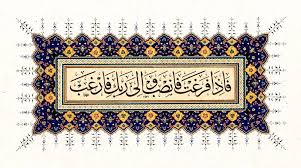 فَإِذَا فَرَغْتَ فَانْصَبْ وَإِلَىٰ رَبِّكَ فَارْغَبْ